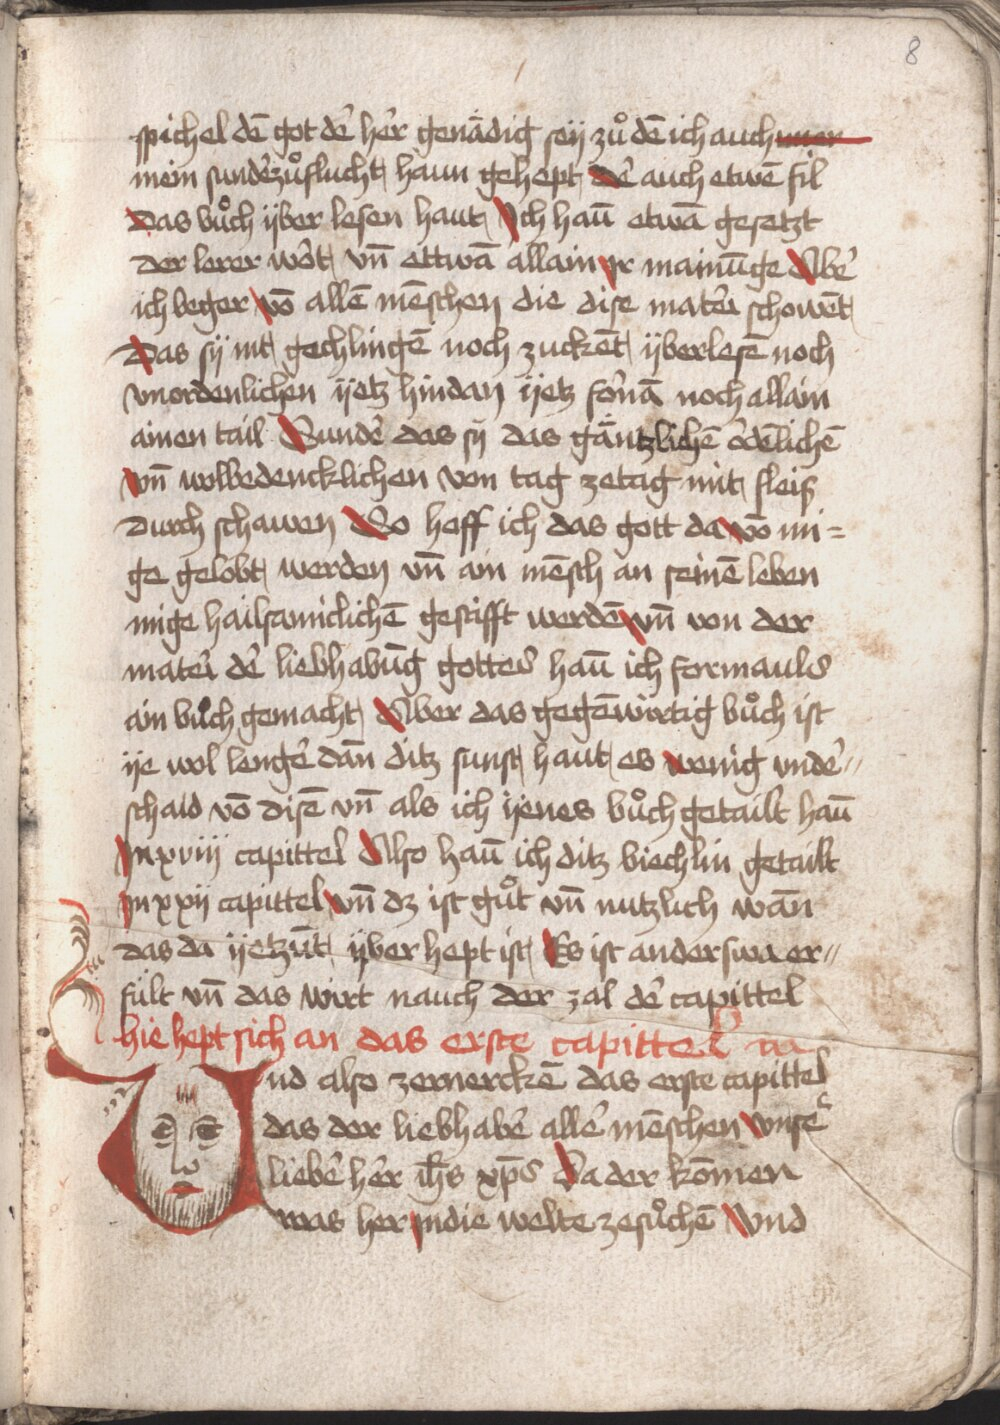 8
spichel dē got dē hēr genādig seÿ zů dē ich auch
mein sundēzůflucht haun gehept dē auch etwē fil
das bůch ÿber lesen haut Ich haū etwā gesetzt
der lerer wōt vn̄ ettwā allain jr mainūge Abē
ich beger vō allē mēschen die dise materi schowēt
Das sÿ nit gechlingē noch zuckēt ÿberlesē noch
vnordenlichen ÿetz hindan ÿetz fōnā noch allain
ainen tail Sundē das sÿ das gäntzlichē ōdēlichē
vn̄ wolbedencklichen von tag zetag mit fleiß
durch schawen So hoff ich das gott da vō mi=
ge gelobt werden vn̄ ain mēsch an seinē leben
mige hailsamclichē gestifft werdē vn̄ von der
materi dē liebhabūg gottes haū ich formauls
ain bůch gemacht Aber das gegēwirtig bůch ist
ÿe wol lengē dan̄ ditz sunst haut es wenig vndē〃
schaid vō disē vn̄ als ich ÿenes bůch getailt haū
jn xviij capittel Also haū ich ditz biechlin getailt
jn xxij capittel vn̄ dz ist gůt vn̄ nutzlich wān
das da ÿetzūt ÿber hept ist Es ist anderswa er〃
fült vn̄ das wirt nauch der zal dē capittel
hie hept sich an das erste capittel
Und also zemerckē das erste capittel
das der liebhabē allē mēschen vnsē
liebē hēr ihs xp̄s Da der kōmen
was her jn die welte zesůchē Vnd